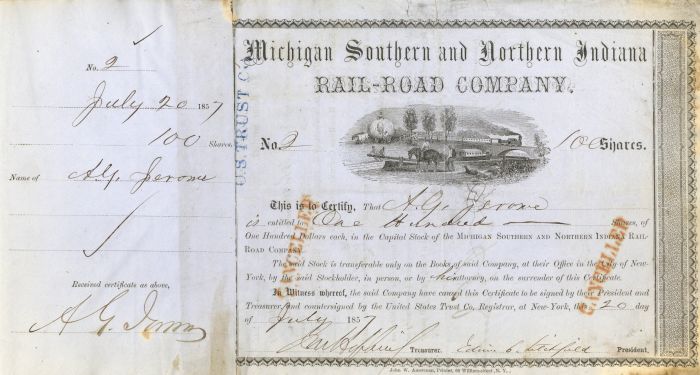 No. 2
July 20 1857
100 Shares.
Name of A. G. Jerome
Received certificate as above,
A G Jerome
U.S. TRUST CO
Michigan Southern and Northern Indiana
RAIL-ROAD COMPANY.
No. 2 100 Shares.
This is to Certify, That A. G. Jerome
is entitled to One Hundred Shares, of
One Hundred Dollars each, in the Capital Stock of the MICHIGAN SOUTHERN AND NORTHERN INDIANA RAIL-
ROAD COMPANY.
The said Stock is transferable only on the Books of said Company, at their Office in the City of New-
York, by the said Stockholder, in person, or by his attorney, on the surrender of this Certificate.
In Witness whereof, the said Company have caused this Certificate to be signed by their President and
Treasurer, and countersigned by the United States Trust Co., Registrar, at New-York, this 20 day
of July 1857
Treasurer. Edwin C. Litchfield President.
CANCELLED
CANCELLED
John W. Amerman, Printer, 60 William-street, N. Y.